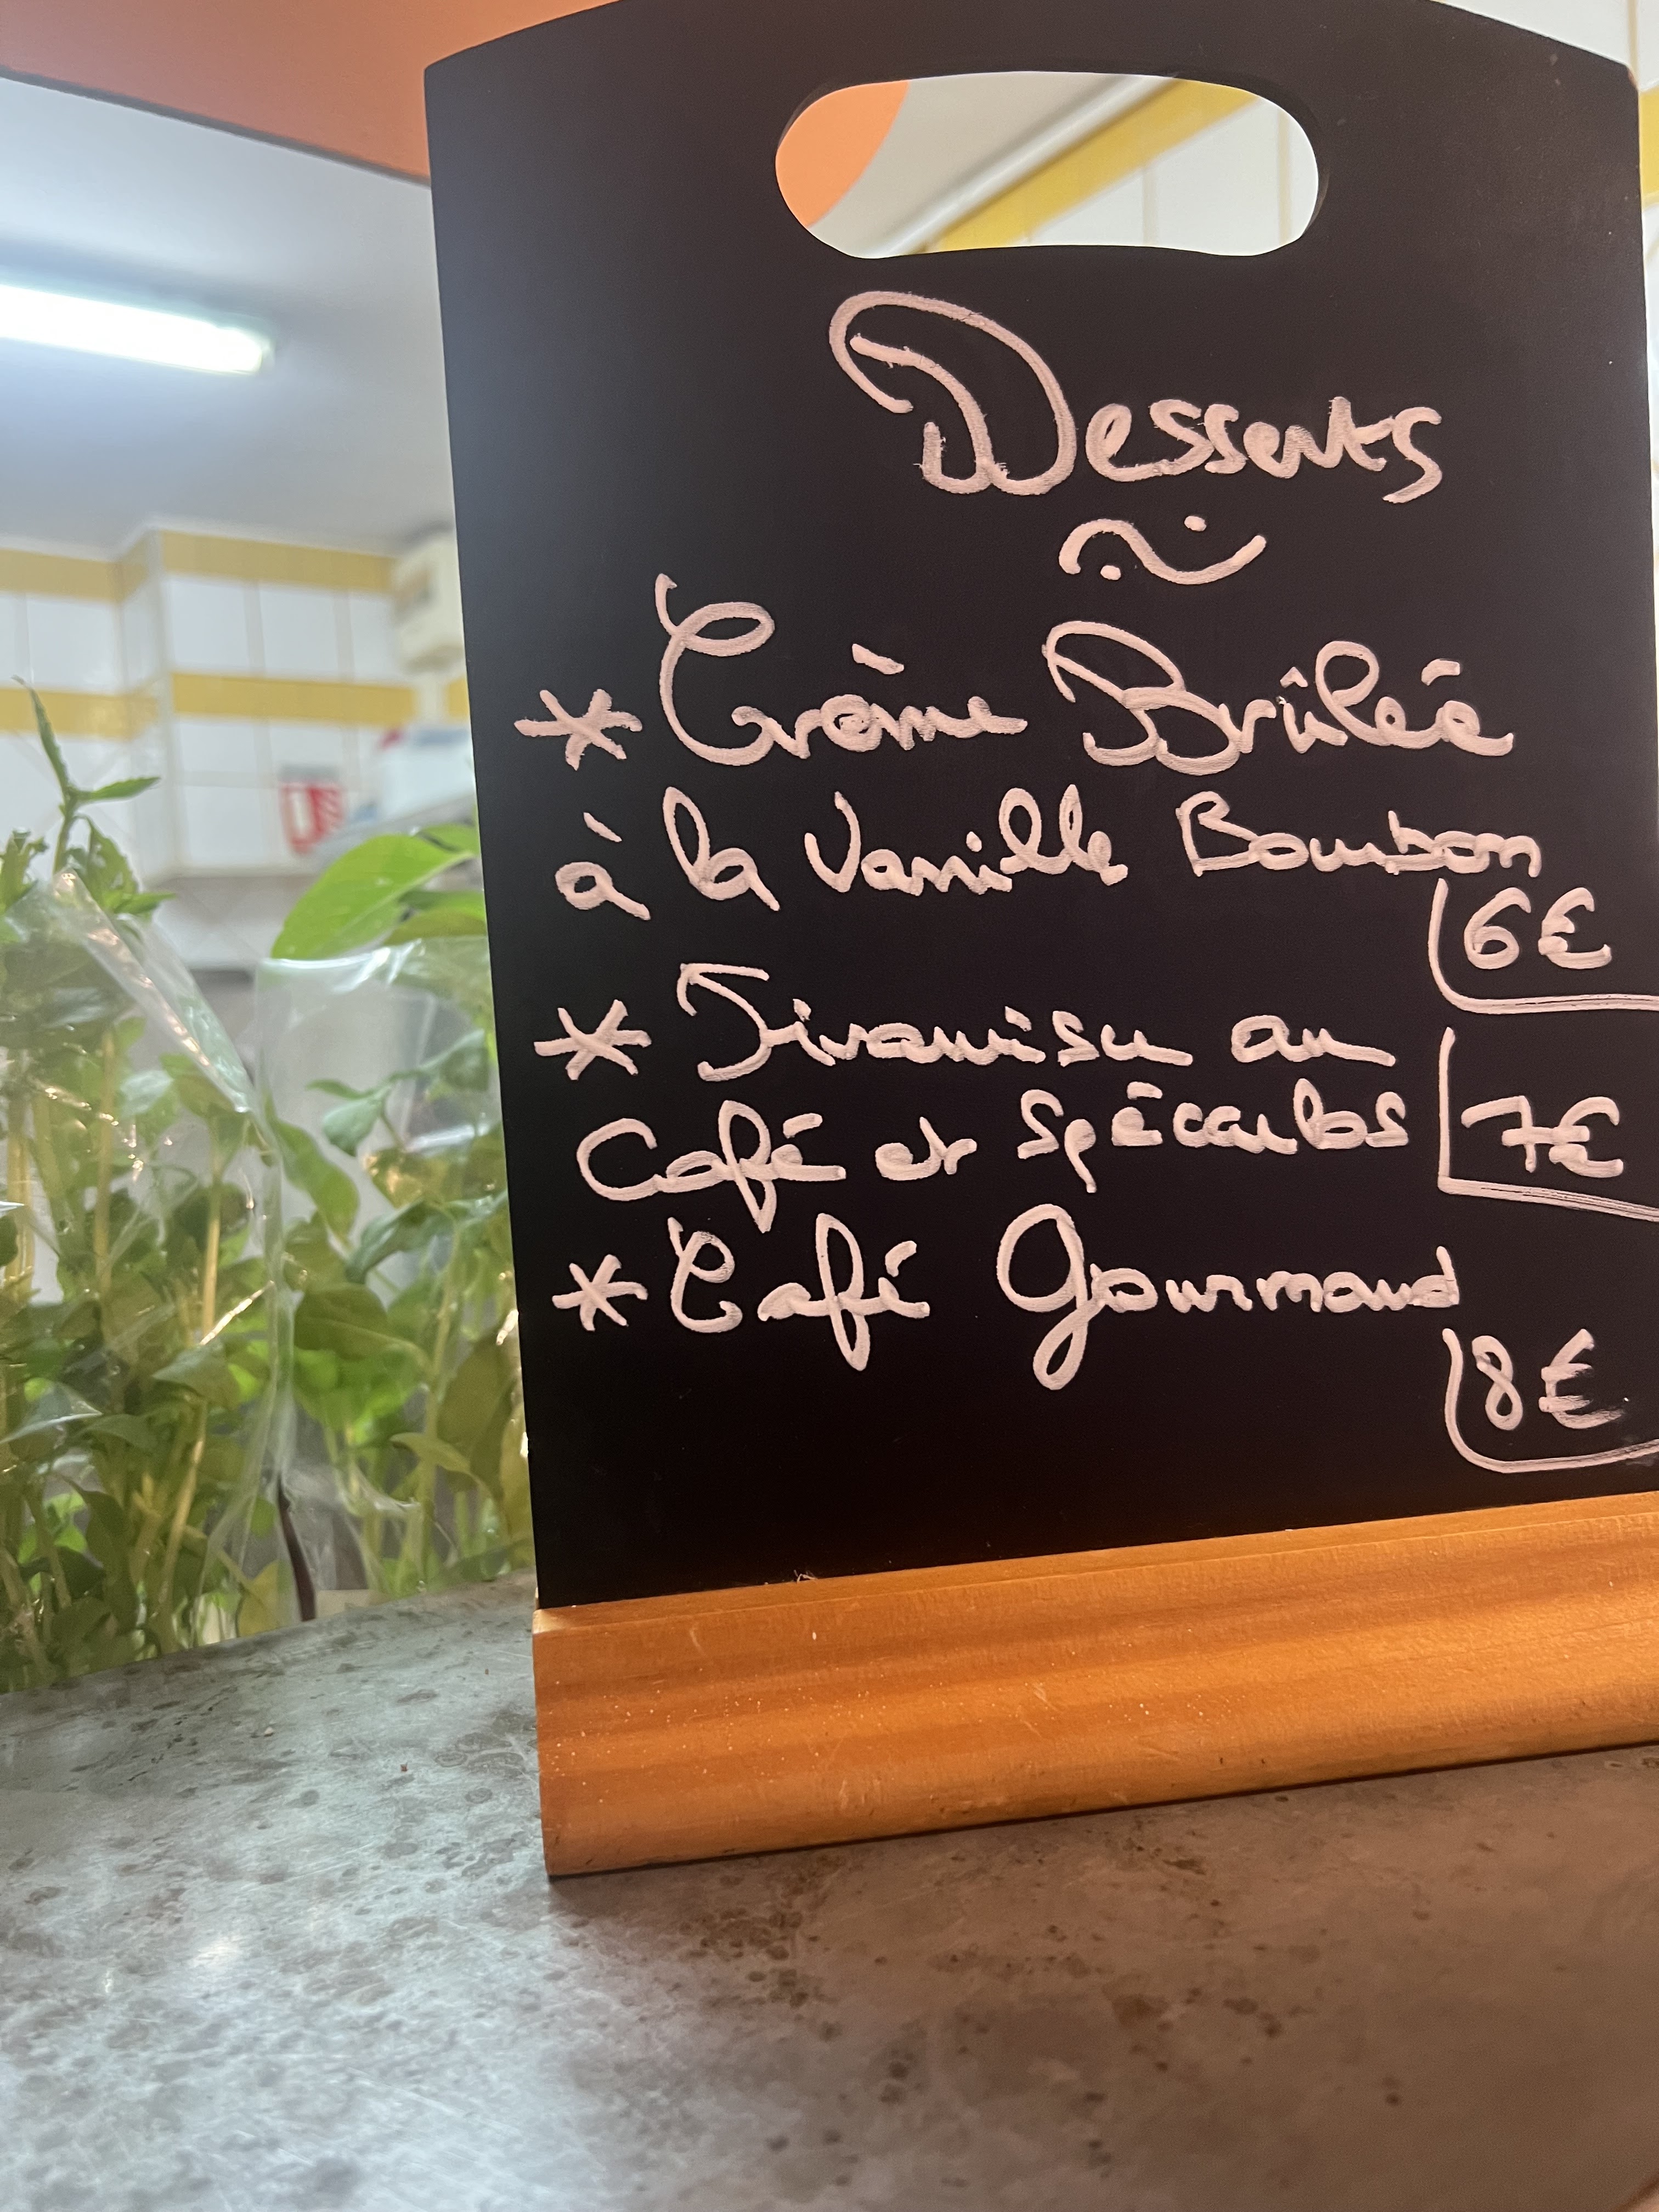 Desserts
* Crème Brûlée
à la Vanille Bourbon
6€
* Tiramisu au
Café et Spéculos
7€
* Café Gourmand
8€